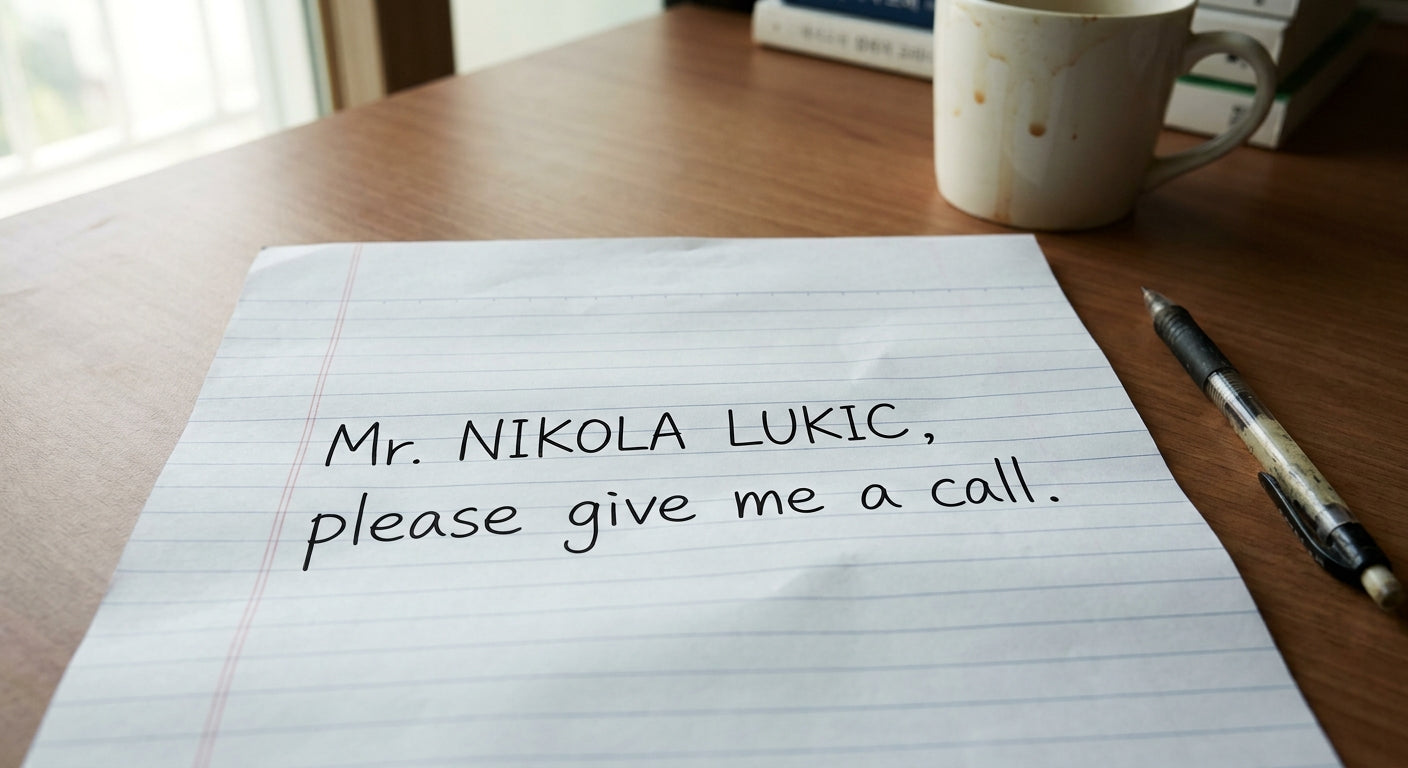 Mr. NIKOLA LUKIC,
please give me a call.